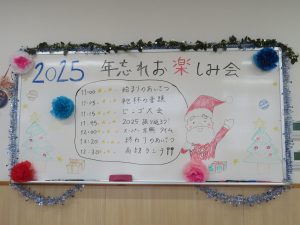 2025 年忘れお楽しみ会
11:00 始まりのあいさつ
11:05 乾杯の音頭
11:15 ビンゴ大会
11:45 2025 振り返り
12:00 スーパー タイム
12:20 終わりのあいさつ
12:30